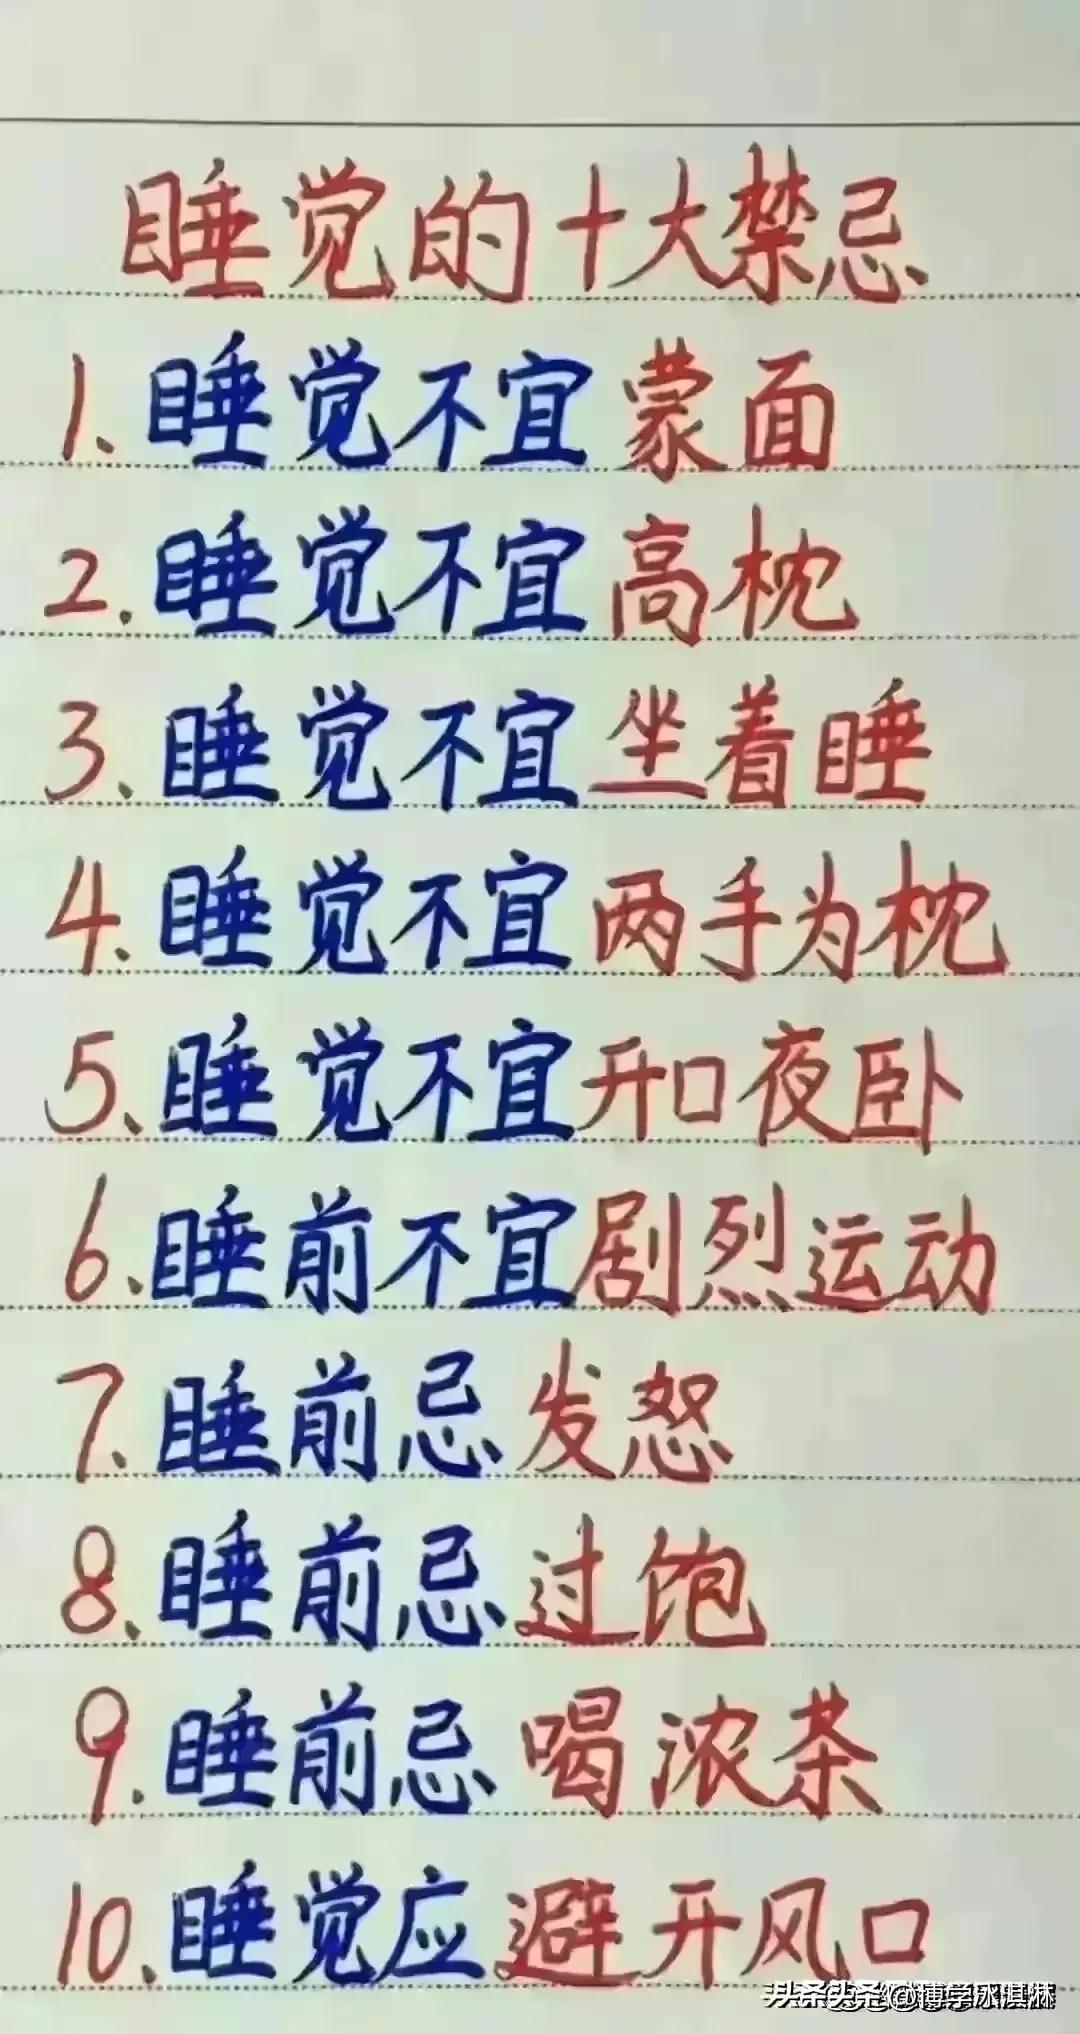 睡觉的十大禁忌
1、睡觉不宜蒙面
2.睡觉不宜高枕
3、睡觉不宜坐着睡
4、睡觉不宜两手为枕
5、睡觉不宜开口夜卧
6.睡前不宜剧烈运动
7、睡前忌发怒
8、睡前忌过饱
9.睡前忌喝浓茶
10、睡觉应避开风口
头条 @博学冰淇淋